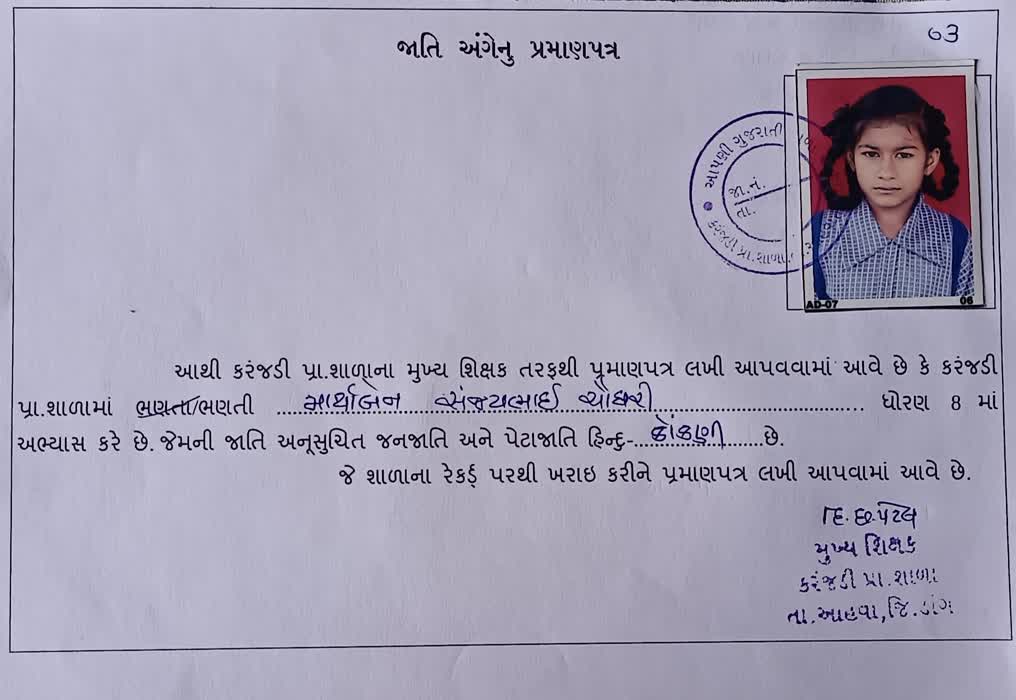 03
જાતિ અંગેનુ પ્રમાણપત્ર
આપણી ગુજરાતી
જા.નં.
તા.
કરંજડી પ્રા.શાળા
AD-07 06
આથી કરંજડી પ્રા.શાળાના મુખ્ય શિક્ષક તરફથી પ્રમાણપત્ર લખી આપવવામાં આવે છે કે કરંજડી
પ્રા.શાળામાં ભણતા/ભણતી ........ સંજયભાઈ ચૌધરી ........ ધોરણ 8 માં
અભ્યાસ કરે છે. જેમની જાતિ અનૂસુચિત જનજાતિ અને પેટાજાતિ હિન્દુ-...કોંકણી...છે.
જે શાળાના રેકર્ડ્ પરથી ખરાઇ કરીને પ્રમાણપત્ર લખી આપવામાં આવે છે.
હિ.છ.પટેલ
મુખ્ય શિક્ષક
કરંજડી પ્રા.શાળા
તા.આહવા,જિ.ડાંગ